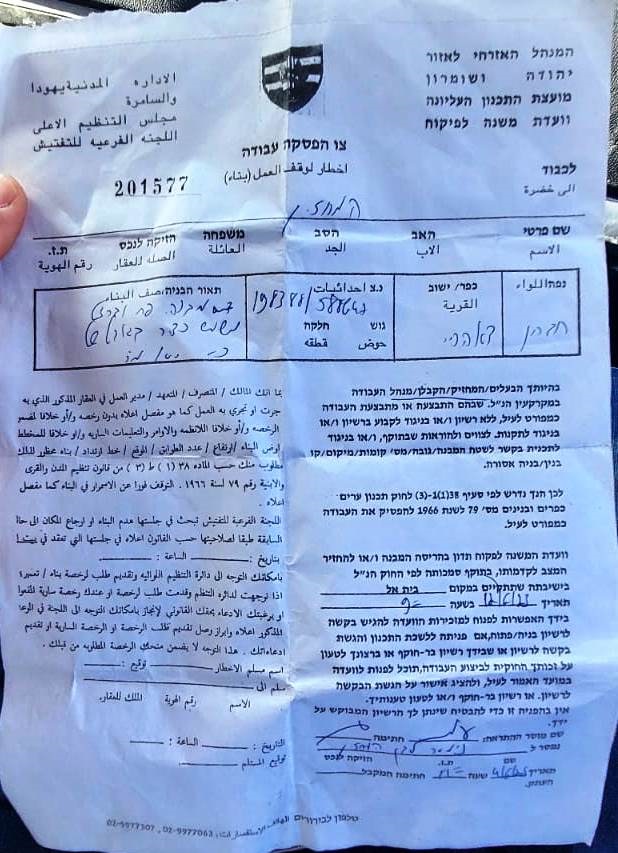 המנהל האזרחי לאזור
יהודה ושומרון
מועצת התכנון העליונה
וועדת משנה לפיקוח
الاداره المدنية يهودا
والسامرة
مجلس التنظيم الاعلى
اللجنه الفرعيه للتفتيش
צו הפסקת עבודה
اخطار لوقف العمل (بناء)
201577
לכבוד
الى حضرة
המחזיק
שם פרטי האב הסב משפחה חזיקה לנכס ת.ז.
الاسم الاب الجد العائلة الصله للعقار رقم الهوية
נפה اللواء
חברון
כפר/ ישוב
القرية
דאהריה
נ.צ احداثيات
גוש חלקה
حوض قطعه
תאור הבניה صف البناء
בהיותך הבעלים/המחזיק/הקבלן/מנהל העבודה
במקרקעין הנ"ל. שבהם התבצעה או מתבצעת העבודה
כמפורט לעיל, ללא רשיון ו/או בניגוד לקבוע ברשיון ו/או
בניגוד לתקנות. לצווים ולהוראות שבתוקף, ו/או בניגוד
לתכנית בקשר לשטח המבנה/גובה/מס' קומות/מיקום/קו
בנין/בניה אסורה.
לכן הנך נדרש לפי סעיף 38(1)-(3) לחוק תכנון ערים
כפרים ובנינים מס' 79 לשנת 1966 להפסיק את העבודה
כמפורט לעיל.
וועדת המשנה לפקוח תדון בהריסה המבנה ו/או להחזיר
המצב לקדמותו, בתוקף סמכותה לפי החוק הנ"ל
בישיבתה שתתקיים במקום בית אל
תאריך בשעה
בידך האפשרות לפנות למזכירות הוועדה להגיש בקשה
לרשיון בניה/פתוח, אם פניתה ללשכת התכנון והגשת
בקשה לרשיון או שבידך רשיון בר-חוקף או ברצונך לטעון
על זכותך החוקית לביצוע העבודה, תוכל לפנות לוועדה
במועד האמור לעיל, ולהציג אישור על הגשת הבקשה
לרשיון. או רשיון בר-חוקף ו/או לטעון טענותיך.
אין בהפניה זו כדי להבטיח שינתן לך הרשיון המבוקש על
ידך.
שם מוסר ההתראה: חתימה
נמסר ל
שם ת.ז. חזיקה לנכס
תאריך שעה חתימת המקבל
העתק.
بما انك المالك / المتصرف / المتعهد / مدير العمل في العقار المذكور الذي به
جرت او تجري به العمل كما هو مفصل اعلاه بدون رخصه و/أو خلافا لمضمون
الرخصه و/أو خلافا للانظمه والاوامر والتعليمات الساريه و/أو خلافا للمخطط
البناء / ارتفاع / عدد الطوابق / الموقع / خط ارتداد / بناء محظور لذلك
مطلوب منك حسب الماده ٣٨ (١) ط (٣) من قانون تنظيم المدن والقرى
والابنية رقم ٧٩ لسنة ١٩٦٦. التوقف فورا عن الاستمرار في البناء كما مفصل
اعلاه.
اللجنه الفرعيه للتفتيش تبحث في جلستها هدم البناء او ارجاع المكان الى حالته
السابقة طبقا لصلاحيتها حسب القانون اعلاه في جلستها التي تعقد في
بتاريخ: الساعة:
بامكانك التوجه الى دائرة التنظيم اللوائيه وتقديم طلب لرخصة بناء /
اذا توجهت لدائرة التنظيم وقدمت طلب لرخصة او عندك رخصة سارية المفعول
او برغبتك الادعاء بحقك القانوني لإنجاز بامكانك التوجه الى اللجنة في الوعد
المذكور اعلاه وابراز وصل تقديم طلب الرخصة او الرخصة السارية او تقديم
ادعاءاتك. هذا التوجه لا يضمن منحك الرخصة المطلوبه من قبلك.
اسم مسلم الاخطار توقيع:
سلم الى
الاسم رقم الهوية المالك للعقار.
التاريخ: الساعة:
توقيع المستلم
טלפון לבירורים 02-9977063, 02-9977307